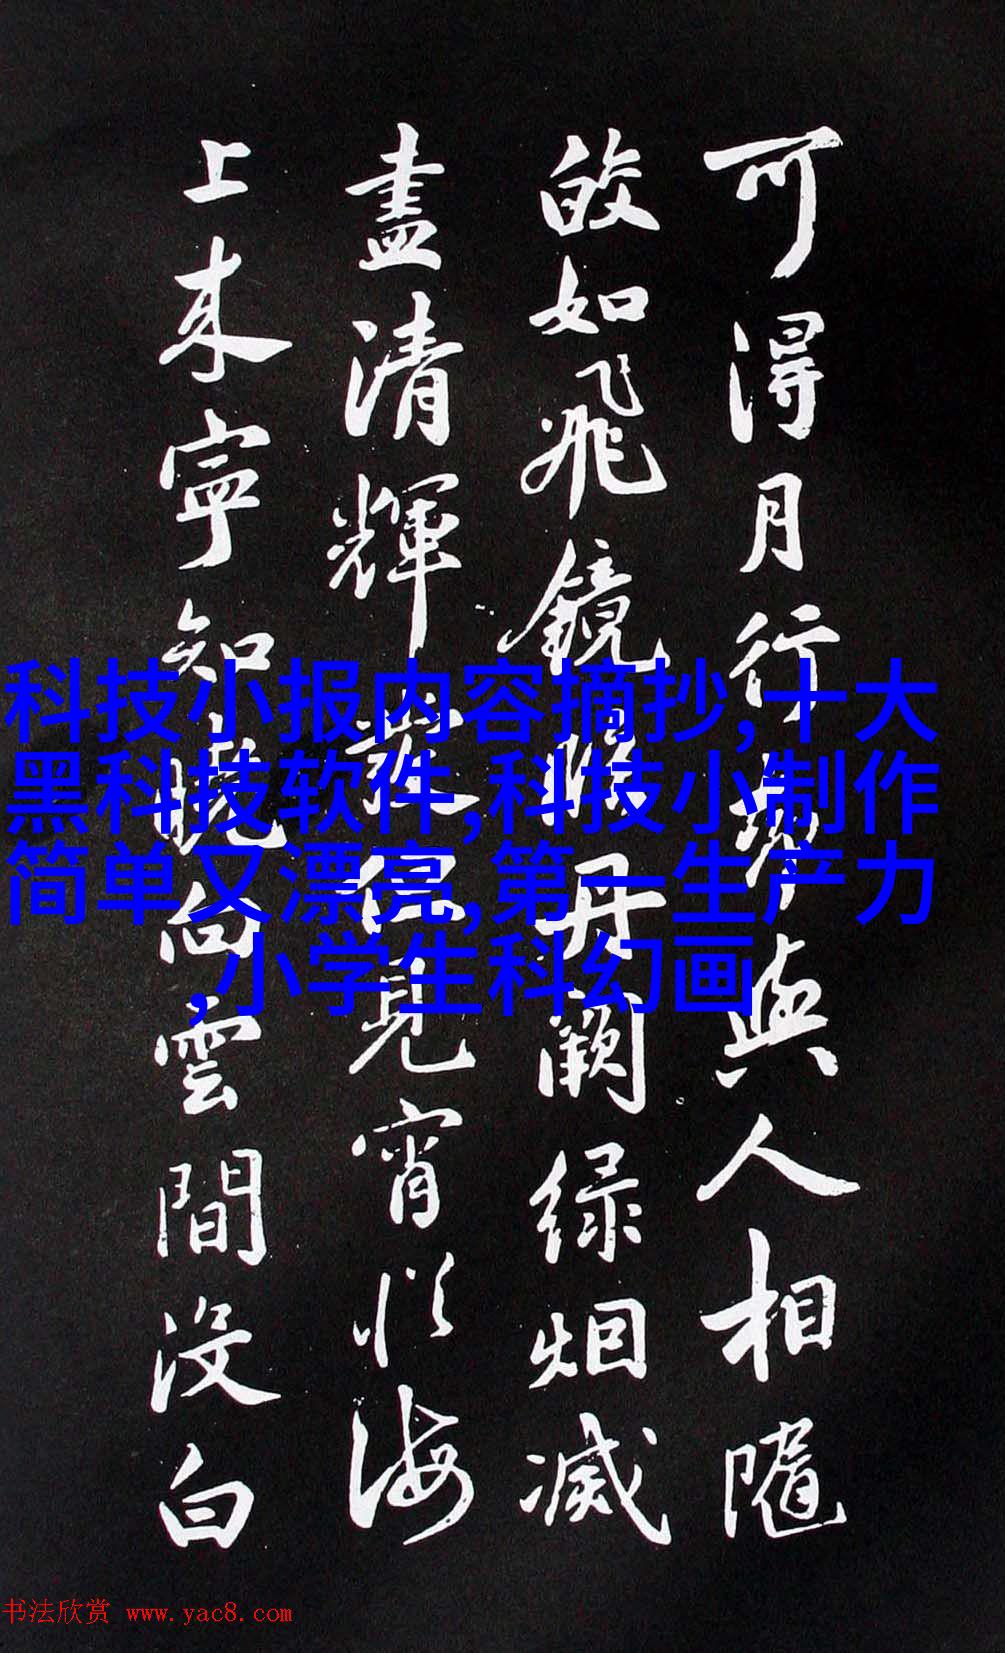 可得月行却與人相隨
皎如飛鏡臨丹闕绿烟滅
盡清輝發但見宵從海
上来寧知曉向雲間没白
科技小报内容摘抄,十大
黑科技软件,科技小制作
简单又漂亮,第一生产力
,小学生科幻画
书法欣赏 www.yac8.com